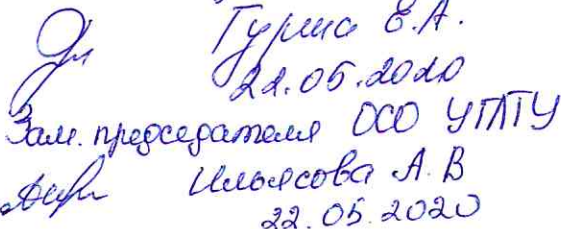 Гурина Е.А.
22.05.2020
Зам. председателя ОСО УГЛТУ
Ильясова А.В
22.05.2020